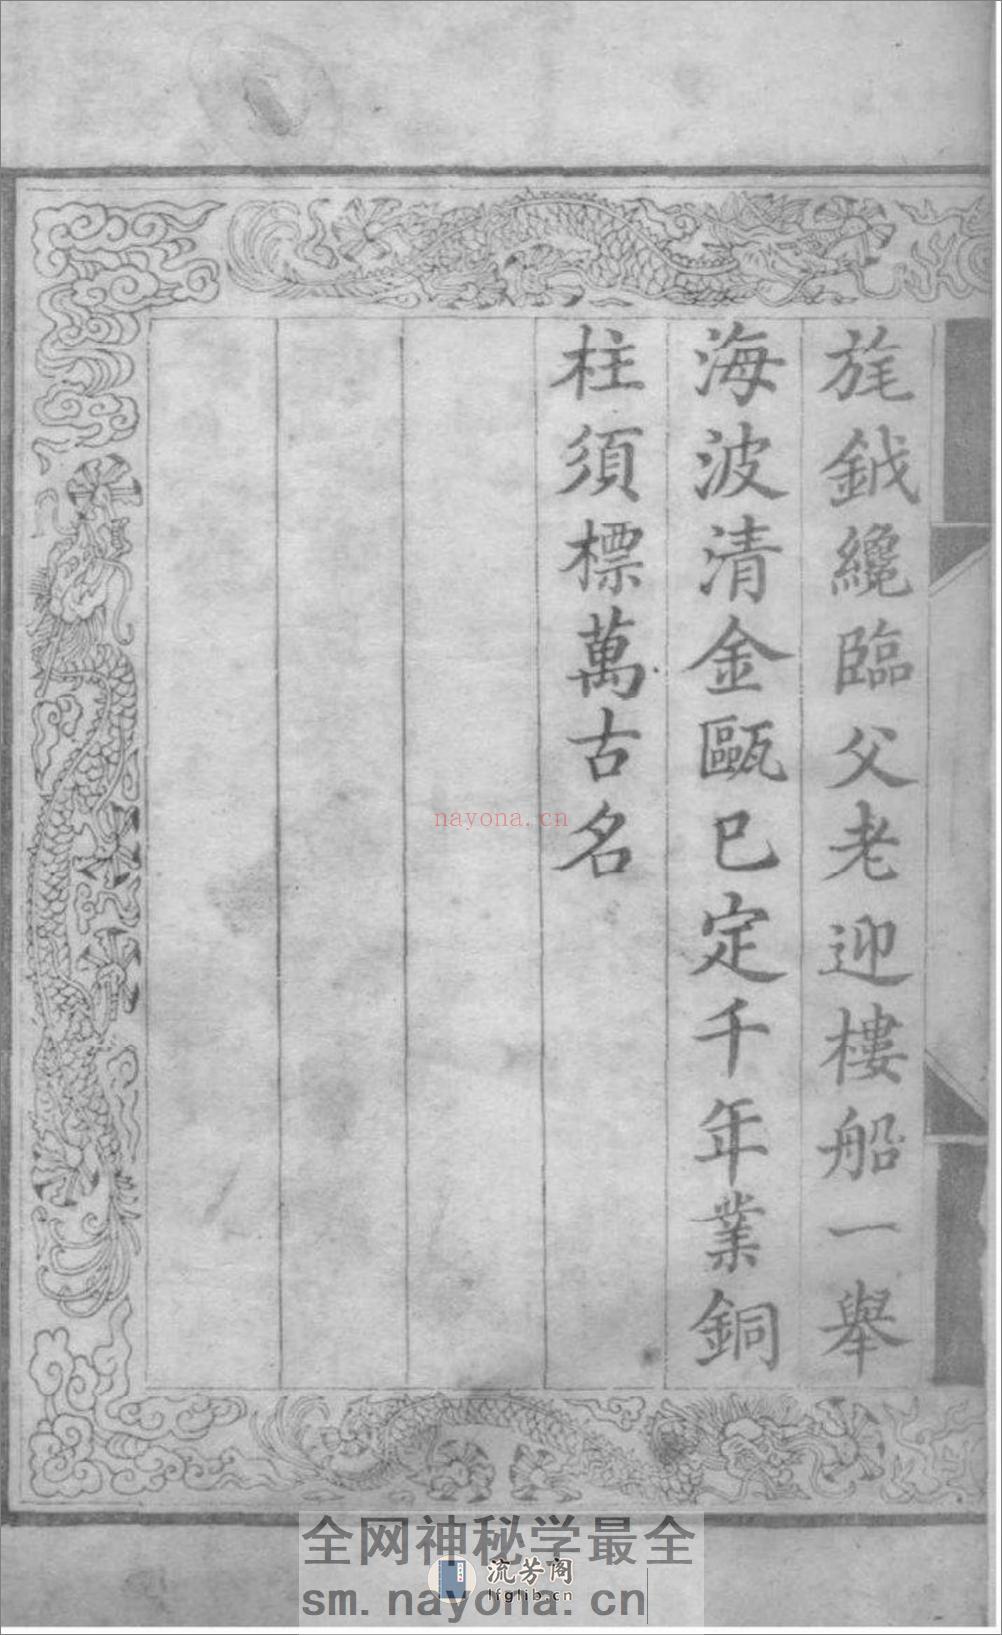 旄鉞纔臨父老迎樓船一舉
海波清金甌已定千年業銅
柱須標萬古名
nayona.cn
全网神秘学最全
流芳阁
lfglib.cn
sm.nayona.cn